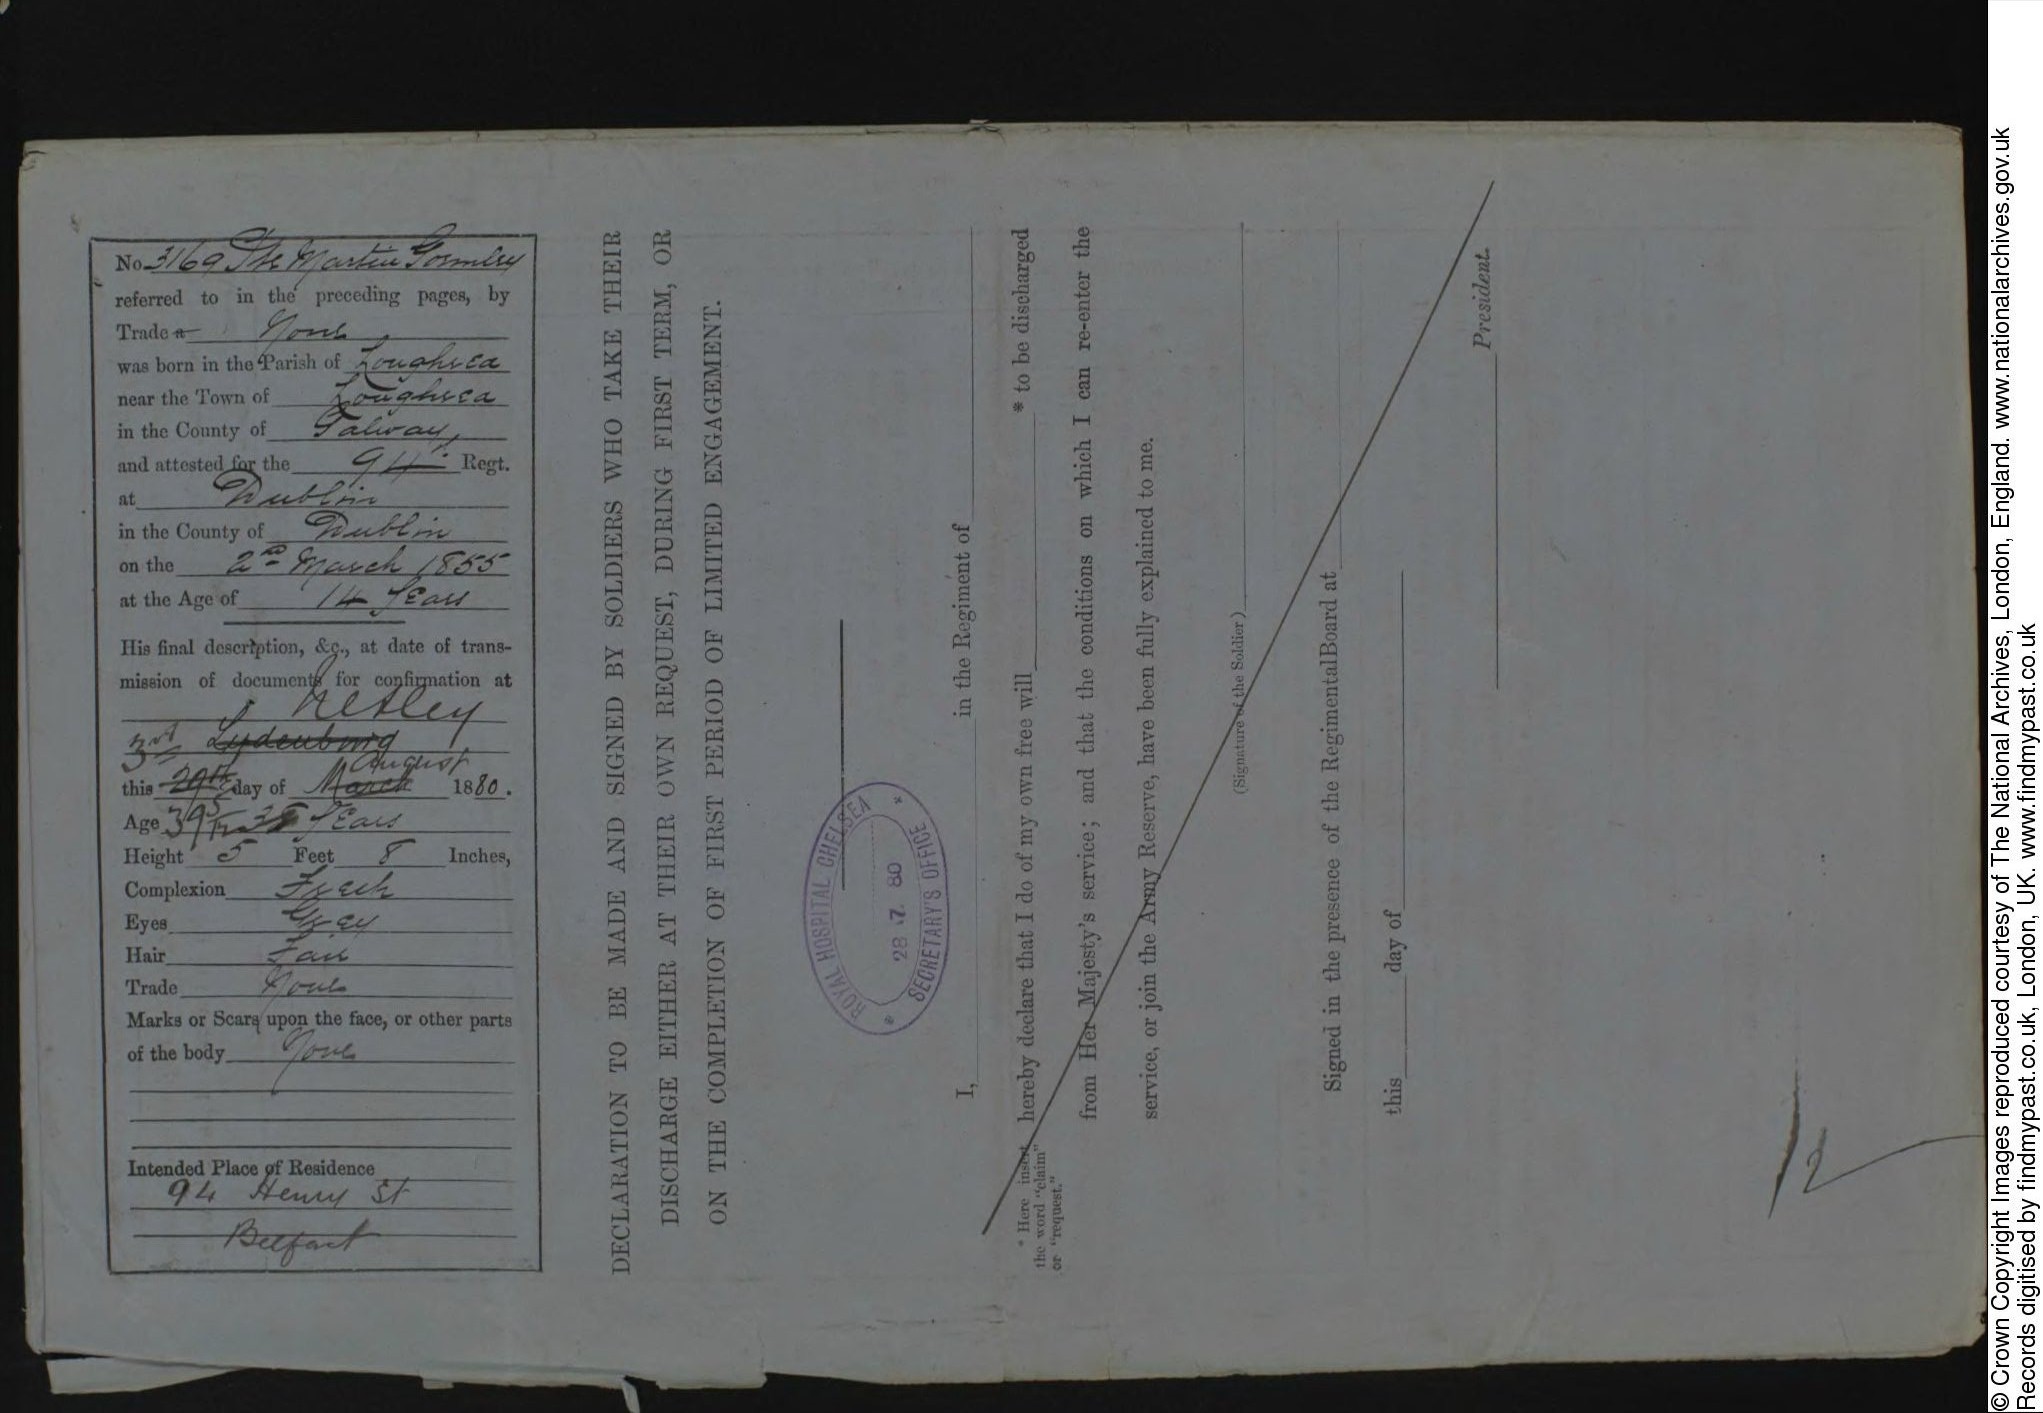 No 3169 Pte Martin Gormley
referred to in the preceding pages, by
Trade a None
was born in the Parish of Loughrea
near the Town of Loughrea
in the County of Galway,
and attested for the 94th Regt.
at Dublin
in the County of Dublin
on the 2nd March 1855
at the Age of 14 Years
His final description, &c., at date of trans-
mission of documents for confirmation at
Netley
3rd Lydenburg
August
this 29th day of March 1880.
Age 39 Years
Height 5 Feet 8 Inches,
Complexion Fresh
Eyes Grey
Hair Fair
Trade None
Marks or Scars upon the face, or other parts
of the body None
Intended Place of Residence
94 Henry St
Belfast
DECLARATION TO BE MADE AND SIGNED BY SOLDIERS WHO TAKE THEIR
DISCHARGE EITHER AT THEIR OWN REQUEST, DURING FIRST TERM, OR
ON THE COMPLETION OF FIRST PERIOD OF LIMITED ENGAGEMENT.
ROYAL HOSPITAL CHELSEA
28 .7. 80
SECRETARY'S OFFICE
I, in the Regiment of
hereby declare that I do of my own free will * to be discharged
from Her Majesty's service; and that the conditions on which I can re-enter the
service, or join the Army Reserve, have been fully explained to me.
* Here insert
the word "claim"
or "request."
(Signature of the Soldier)
Signed in the presence of the Regimental Board at
this day of
President.
12
© Crown Copyright Images reproduced courtesy of The National Archives, London, England. www.nationalarchives.gov.uk
Records digitised by findmypast.co.uk, London, UK. www.findmypast.co.uk